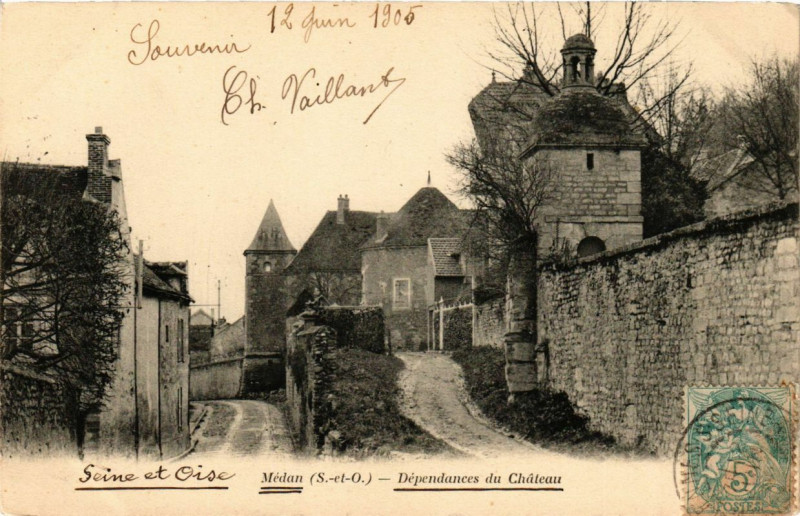 12 Juin 1905
Souvenir
Ch. Vaillant
Seine et Oise
Médan (S.-et-O.) — Dépendances du Château
5
POSTES